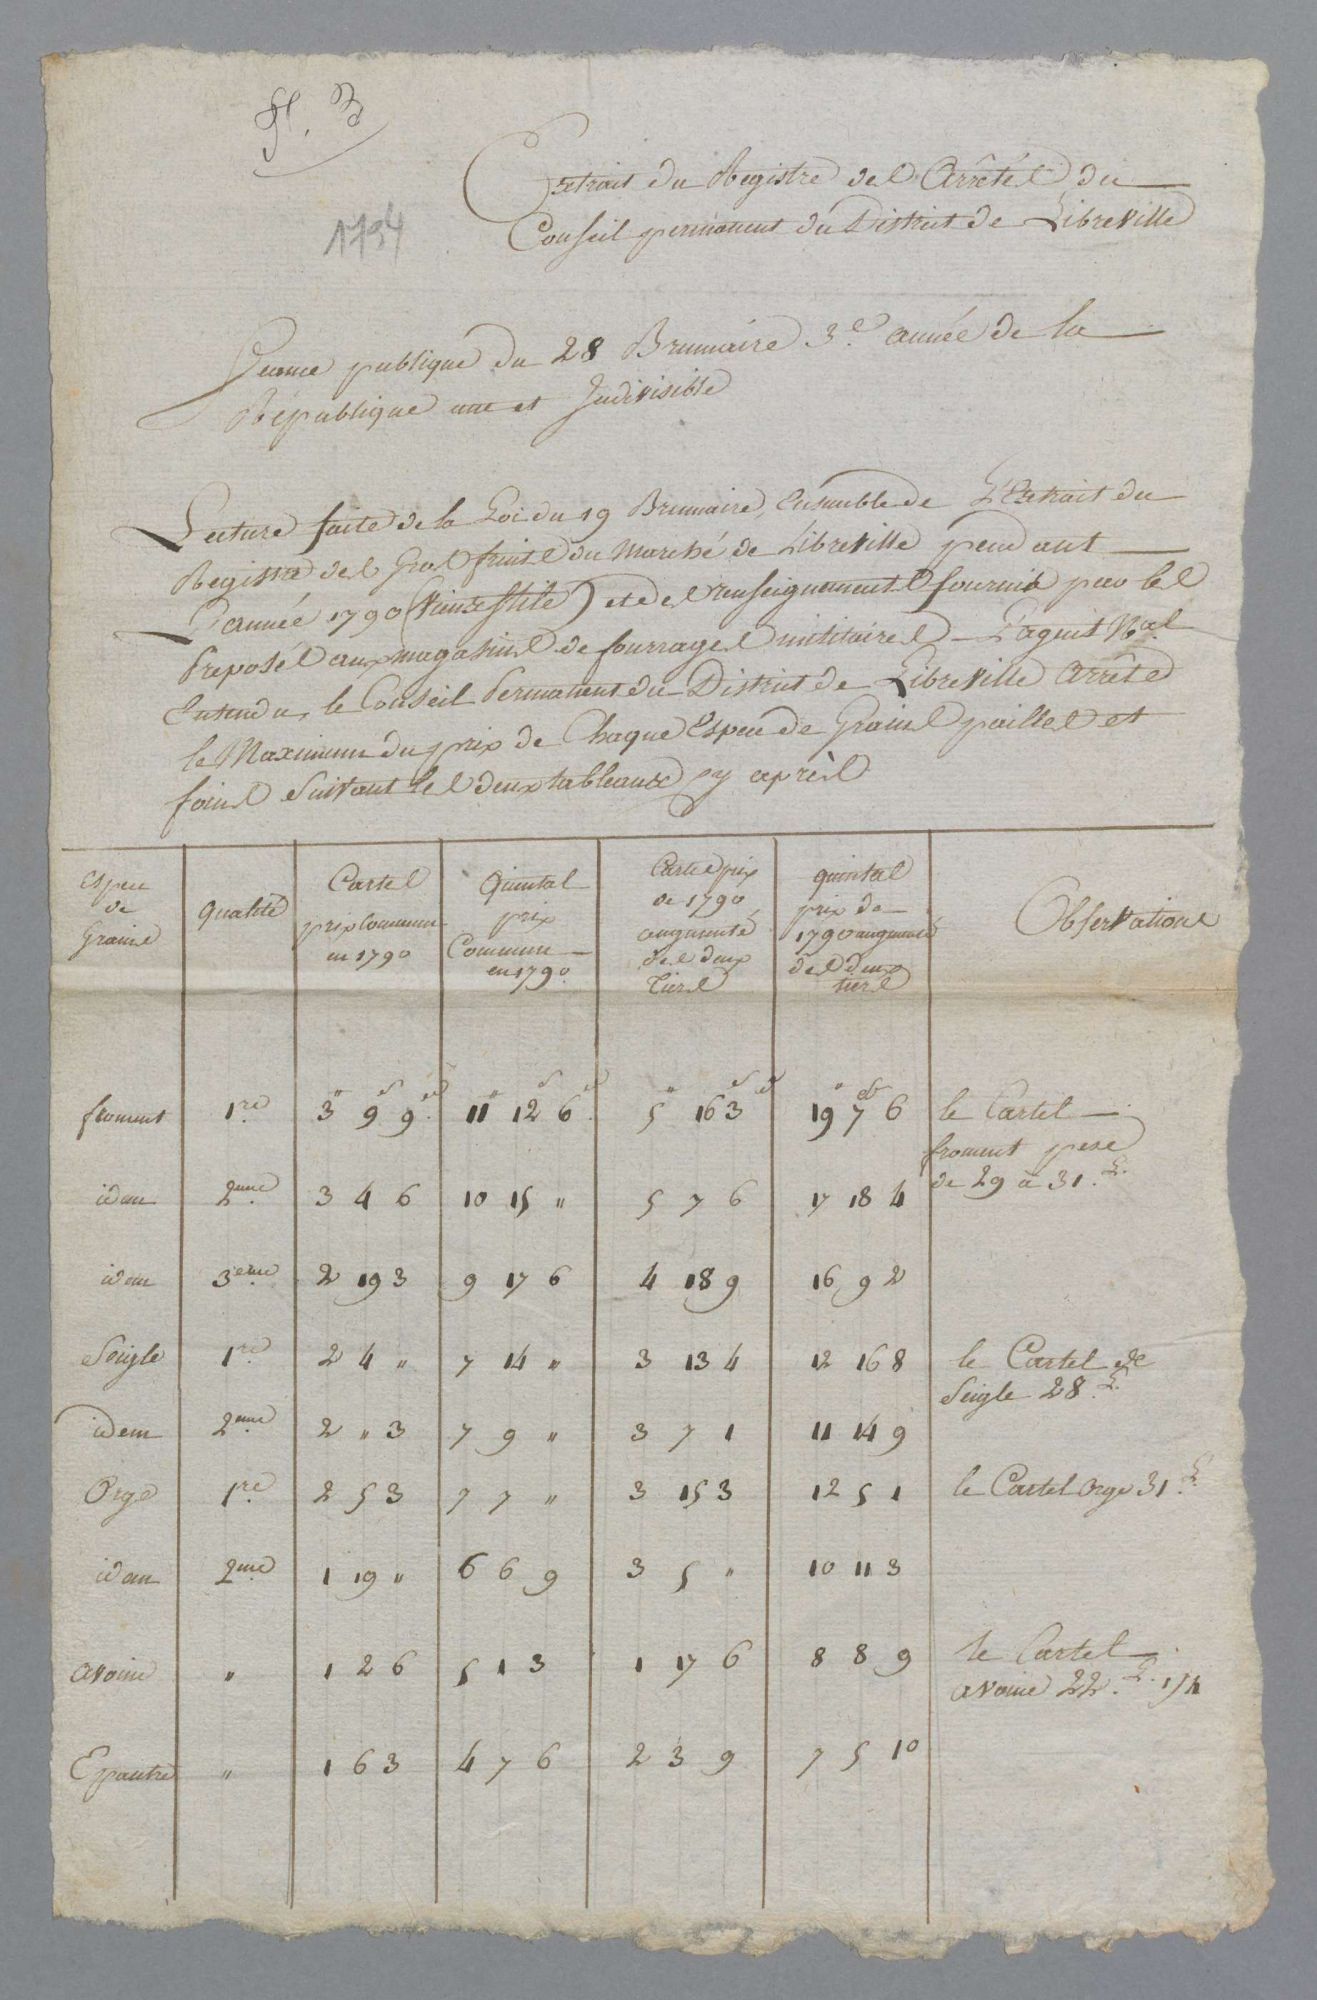 1794
Extrait du Registre des Arrêtés du
Conseil permanent du District de Libreville
Séance publique du 28 Brumaire 3.e année de la
République une et Indivisible
Lecture faite de la Loi du 19 Brumaire, Ensemble de L'Extrait du
Registre des Gros fruits du Marché de Libreville pendant
L'année 1790 (vieux stile) et des renseignements fournis par les
Préposés aux magasins de fourrages militaires L'agent Nal
Entendu, le Conseil Permanent du District de Libreville Arrête
le Maximum du prix de Chaque Espece de Grains pailles et
foins Suivant les deux tableaux cy après
Espece de Grains | qualité | Cartel prix Commun en 1790 | Quintal prix Commun en 1790 | Cartel prix de 1790 augmenté des deux Tiers | quintal prix de 1790 augmenté des deux tiers | Observations
froment 1re 3 9 9 11 12 6 5 16 3 19 7 6 le Cartel
froment pese
de 29 à 31 L.
idem 2eme 3 4 6 10 15 " 5 7 6 17 18 4
idem 3eme 2 19 3 9 17 6 4 18 9 16 9 2
Seigle 1re 2 4 " 7 14 " 3 13 4 12 16 8 le Cartel de
Seigle 28 L.
idem 2eme 2 " 3 7 9 " 3 7 1 11 14 9
Orge 1re 2 5 3 7 7 " 3 15 3 12 5 1 le Cartel Orge 31 L.
idem 2me 1 19 " 6 6 9 3 5 " 10 11 3
avoine " 1 2 6 5 1 3 1 17 6 8 8 9 le Cartel
avoine 22 L.
Epautre " 1 6 3 4 7 6 2 3 9 7 5 10